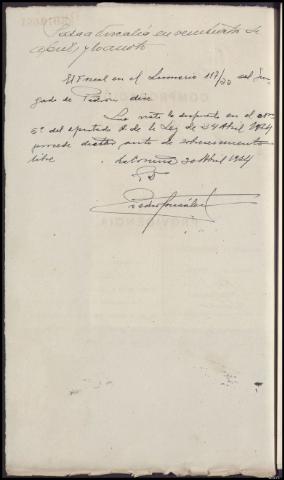 Pasa a fiscalía en veintiseis de
abril, y lo anoto
El Fiscal en el Sumario 117/20 del Juz-
gado de Padrón dice
Que visto lo dispuesto en el art
5º del apartado A de la Ley de 24 Abril 1924
procede dictar auto de sobreseimiento
libre La Coruña 30 Abril 1924
Pedro González